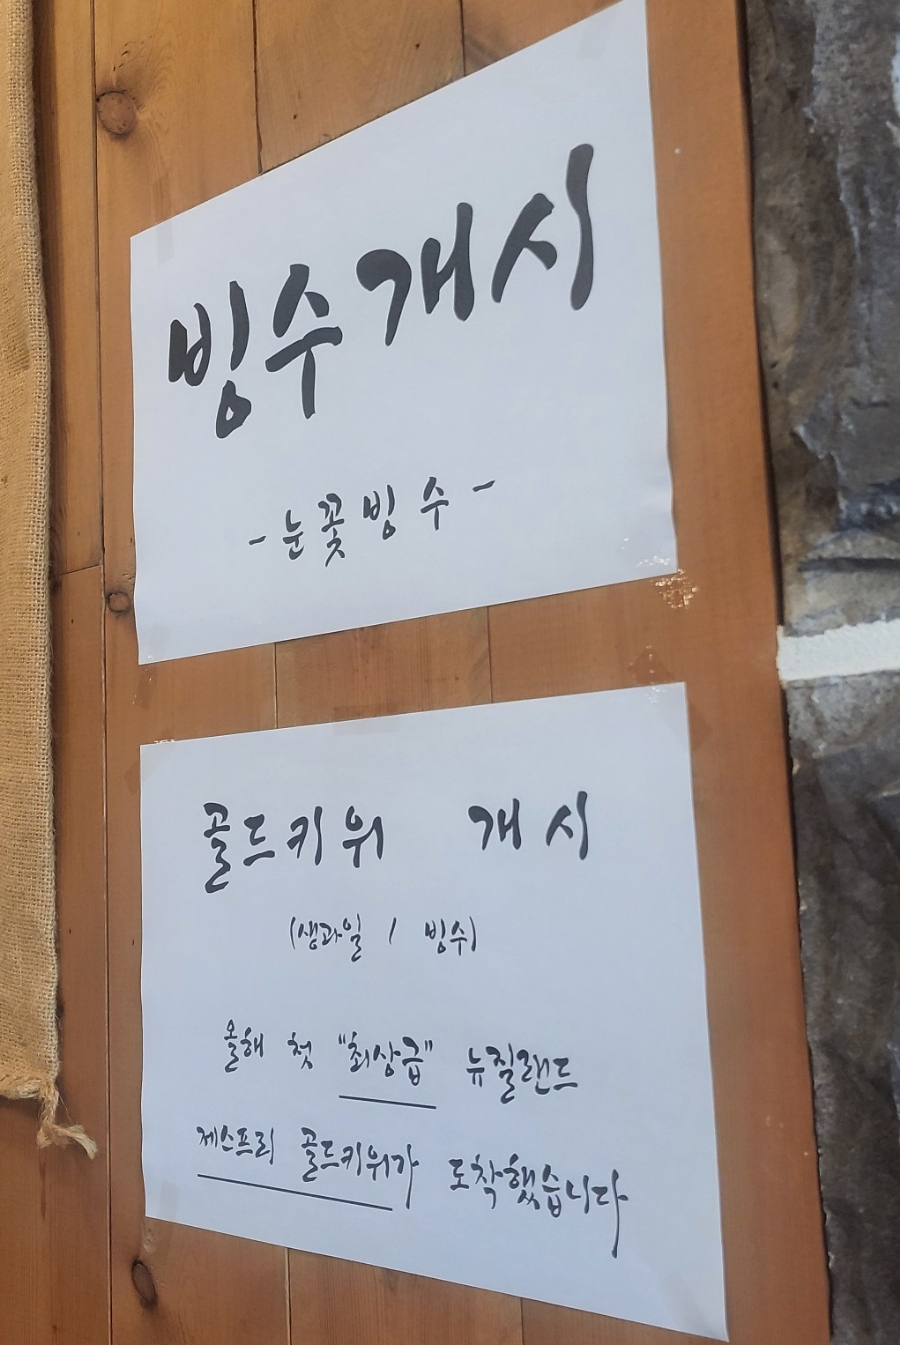 빙수개시
-눈꽃빙수-
골드키위 개시
(생과일 / 빙수)
올해 첫 "최상급" 뉴질랜드
제스프리 골드키위가 도착했습니다